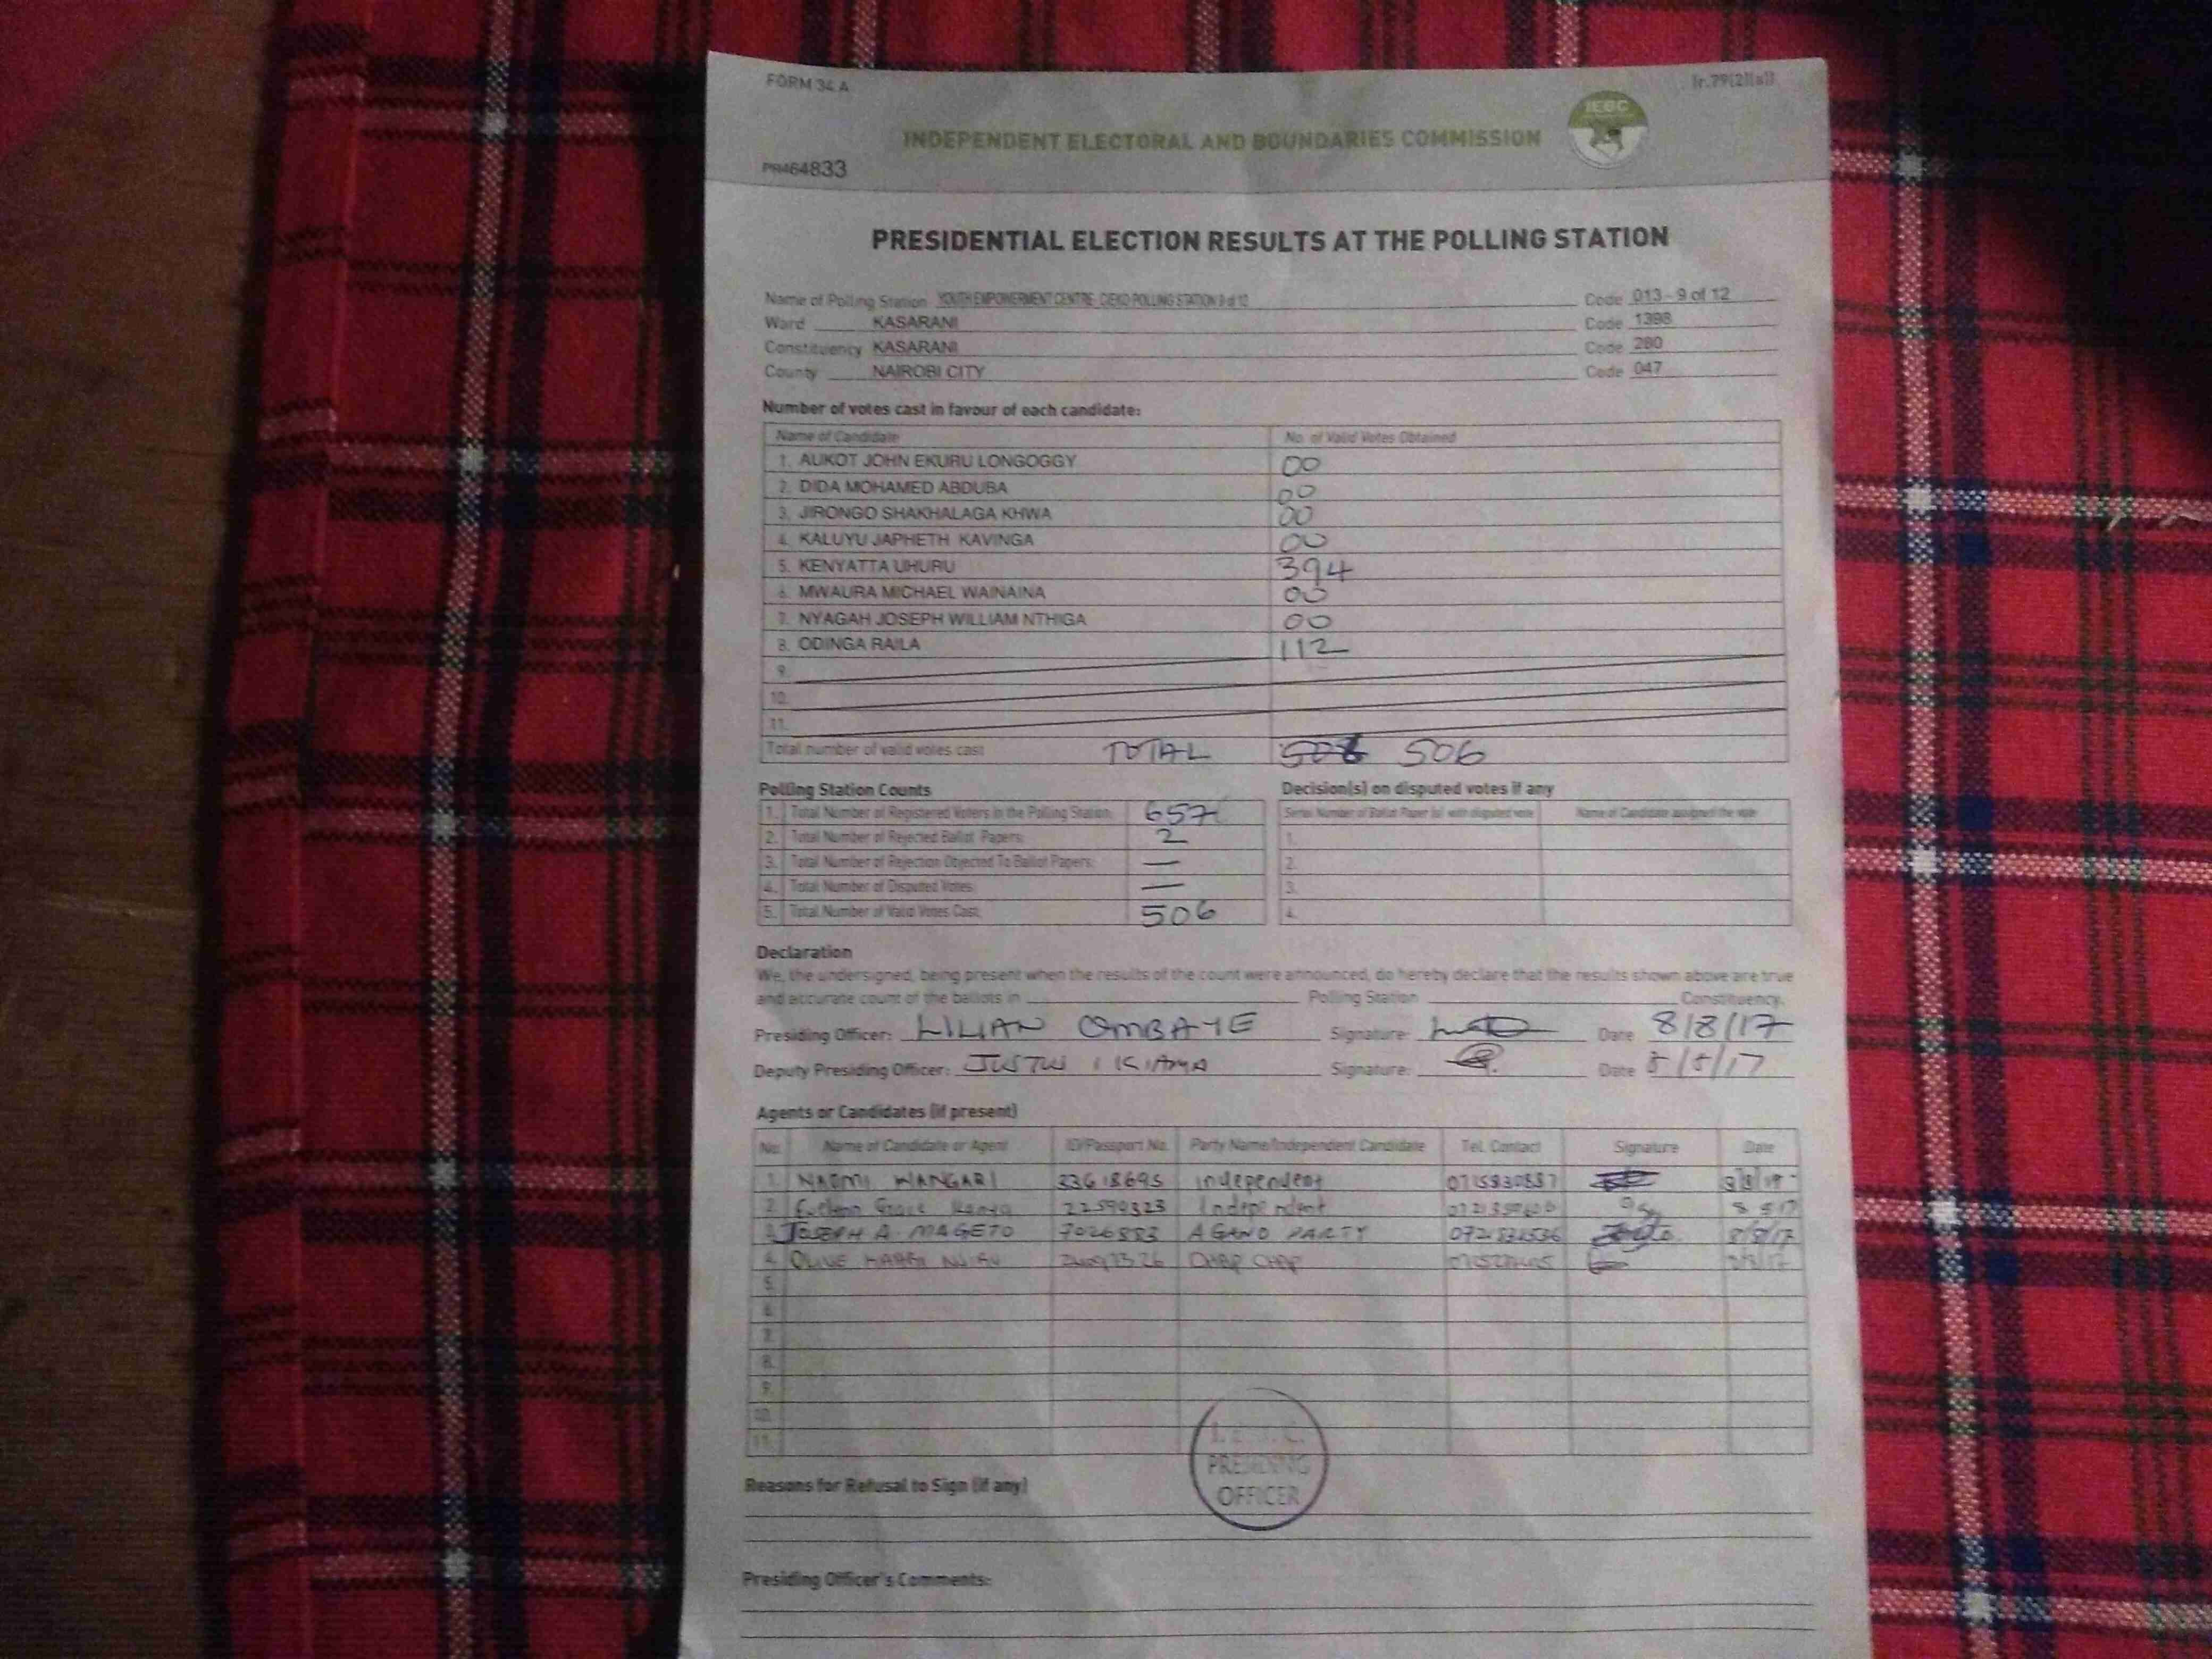 FORM 34 A
(r.79(2)(a))
IEBC
INDEPENDENT ELECTORAL AND BOUNDARIES COMMISSION
PR464833
PRESIDENTIAL ELECTION RESULTS AT THE POLLING STATION
Name of Polling Station YOUTH EMPOWERMENT CENTRE- POLLING STATION 9 of 12 Code 013 - 9 of 12
Ward KASARANI Code 1398
Constituency KASARANI Code 280
County NAIROBI CITY Code 047
Number of votes cast in favour of each candidate:
Name of Candidate No. of Valid Votes Obtained
1. AUKOT JOHN EKURU LONGOGGY 00
2. DIDA MOHAMED ABDUBA 00
3. JIRONGO SHAKHALAGA KHWA 00
4. KALUYU JAPHETH KAVINGA 00
5. KENYATTA UHURU 394
6. MWAURA MICHAEL WAINAINA 00
7. NYAGAH JOSEPH WILLIAM NTHIGA 00
8. ODINGA RAILA 112
9.
10.
11.
Total number of valid votes cast TOTAL 506
Polling Station Counts Decision(s) on disputed votes if any
1. Total Number of Registered Voters in the Polling Station 657 Serial Number of Ballot Paper (s) with disputed vote Name of Candidate assigned the vote
2. Total Number of Rejected Ballot Papers 2 1.
3. Total Number of Rejection Objected To Ballot Papers — 2.
4. Total Number of Disputed Votes — 3.
5. Total Number of Valid Votes Cast 506 4.
Declaration
We, the undersigned, being present when the results of the count were announced, do hereby declare that the results shown above are true
and accurate count of the ballots in Polling Station Constituency.
Presiding Officer: LILIAN OMBAYE Signature: Date 8/8/17
Deputy Presiding Officer: Signature: Date 8/8/17
Agents or Candidates (if present)
No. Name of Candidate or Agent ID/Passport No. Party Name/Independent Candidate Tel. Contact Signature Date
1. NAOMI WANGARI 33618695 Independent
2. Grace 22590323 Independent
3. JOSEPH A. MAGETO 7026883 AGANO PARTY 8/8/17
4. OLIVE CHAP CHAP
5.
6.
7.
8.
9.
10.
11.
I.E.B.C.
PRESIDING
OFFICER
Reasons for Refusal to Sign (if any)
Presiding Officer's Comments: